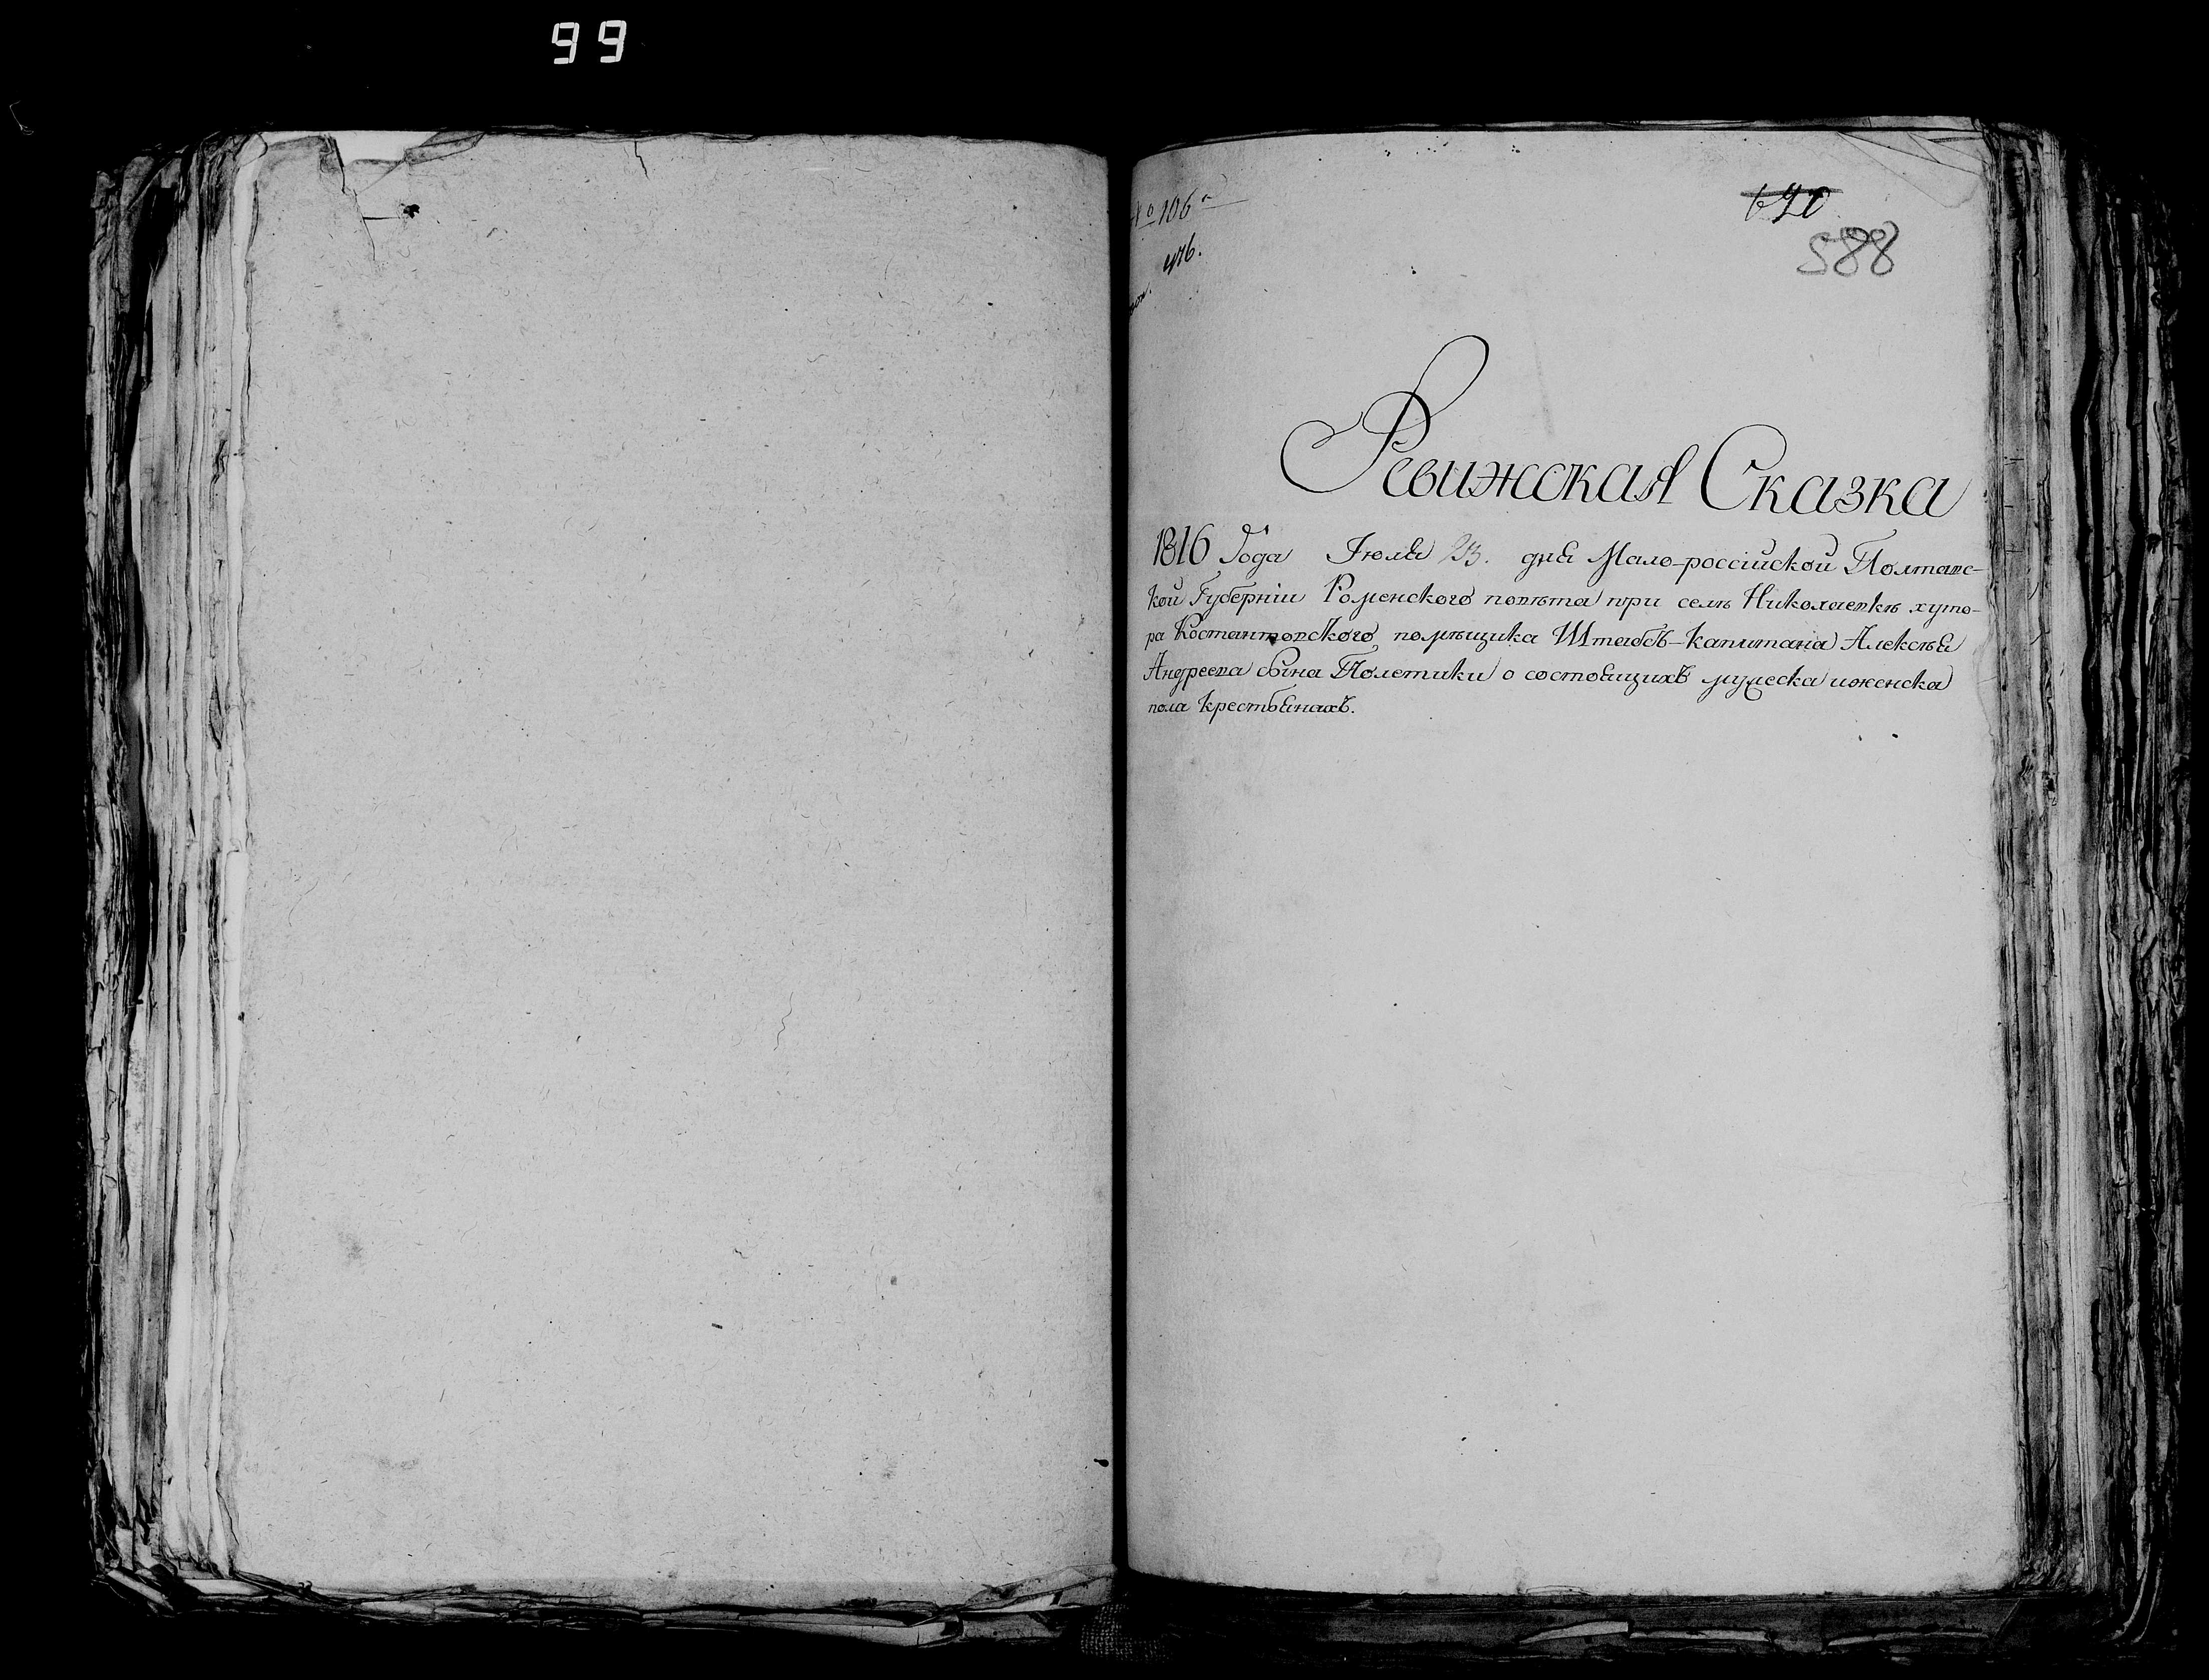 99
№ 106
416.
588
Ревижская Сказка
1816 Года Июля 23. дня Мало-россiйской Полтавс-
кой Губернiи Роменского повѣта при селѣ Николаевкѣ хуто-
ра Костантовского помѣщика Штабсъ-капитана Алексѣя
Андреева сына Полетики о состоящихъ мужеска иженска
пола крестьянахъ.